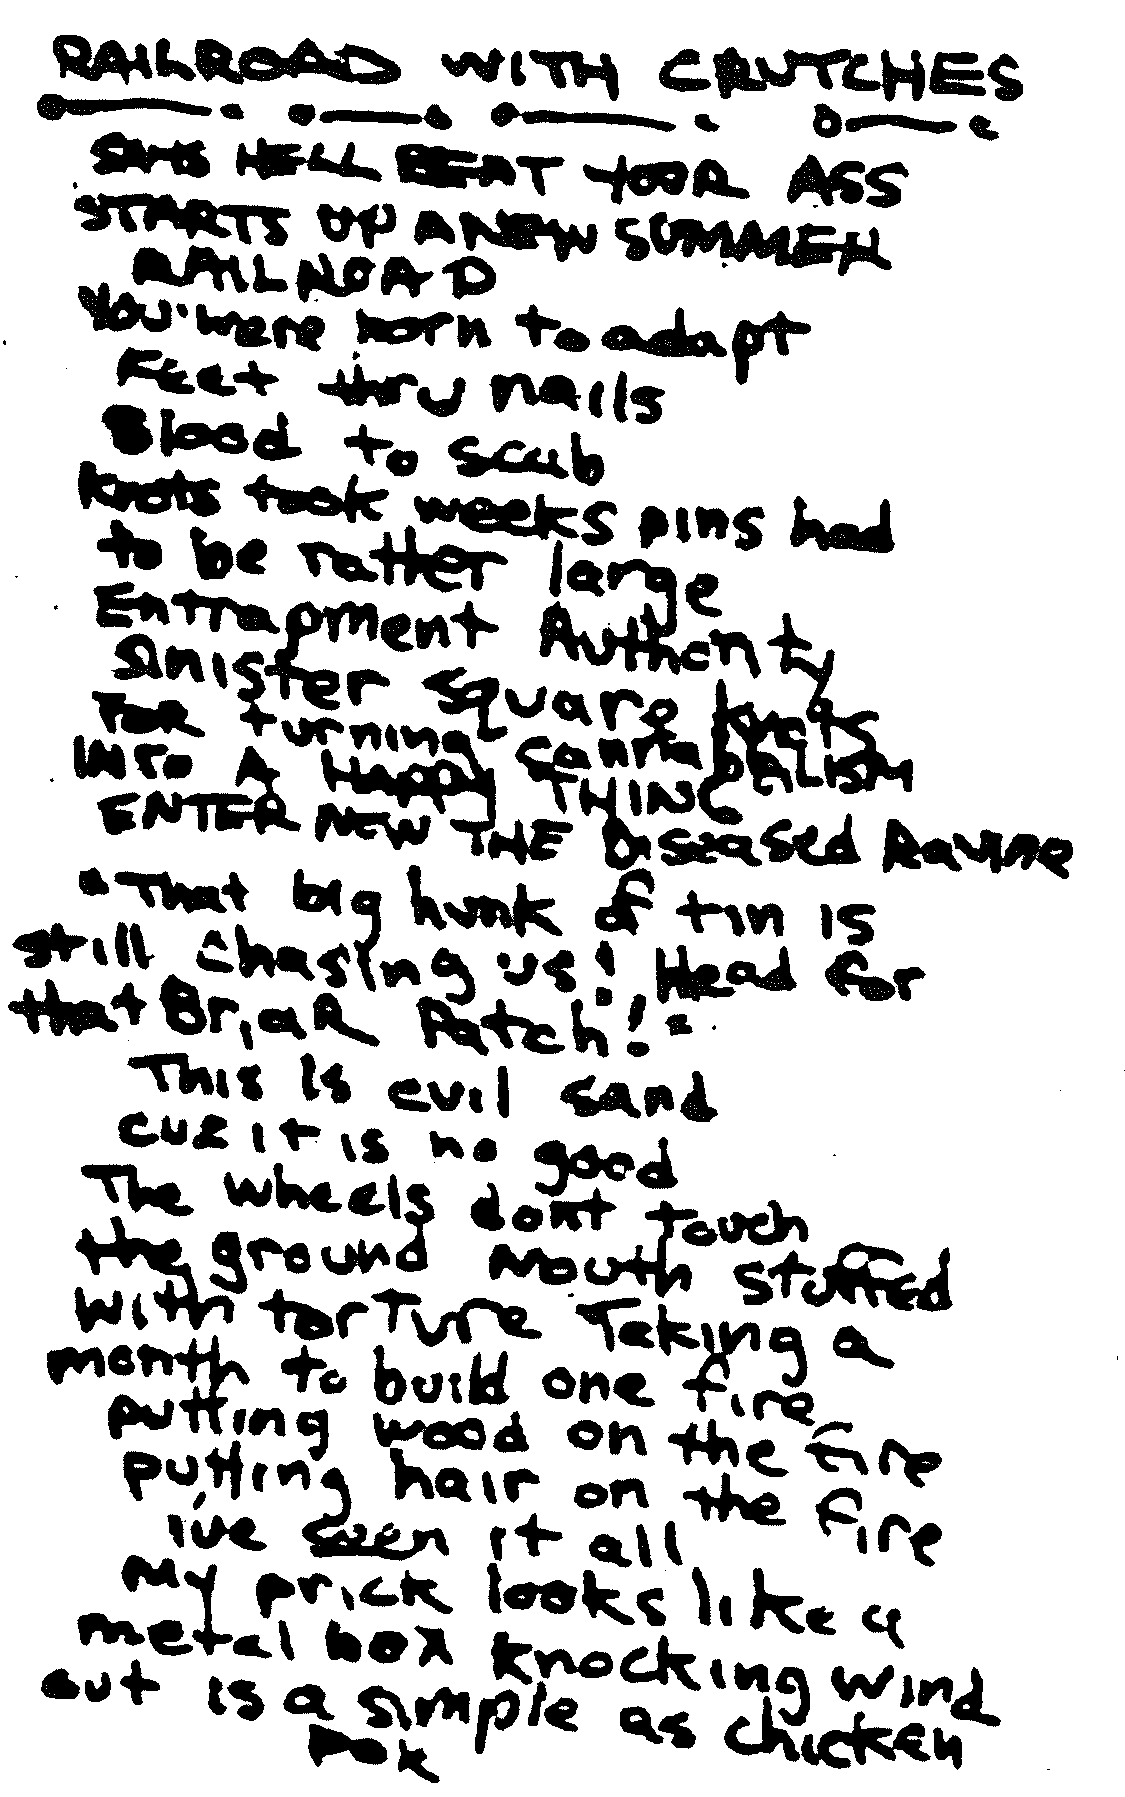 RAILROAD WITH CRUTCHES
SAYS HELL BEAT YOUR ASS
STARTS UP A NEW SUMMER
RAILROAD
You were born to adapt
Feet thru nails
Blood to scab
Knots took weeks pins had
to be rather large
Entrapment Authority
Sinister square knots
FOR turning cannabalism
INTO A HAPPY THING
ENTER NEW THE Diseased Ravine
"That big hunk of tin is
still chasing us! Head for
that BriaR Patch!"
This is evil sand
cuz it is no good
The wheels dont touch
the ground Mouth stuffed
with torture Taking a
month to build one fire
putting wood on the fire
putting hair on the fire
i've seen it all
my prick looks like a
metal box knocking wind
out is a simple as chicken
Pox